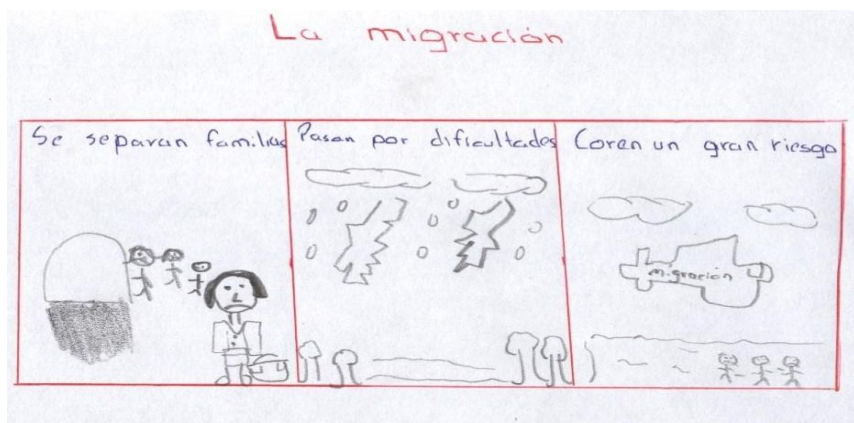 La migración
Se separan familias
Pasan por dificultades
Coren un gran riesgo
migración